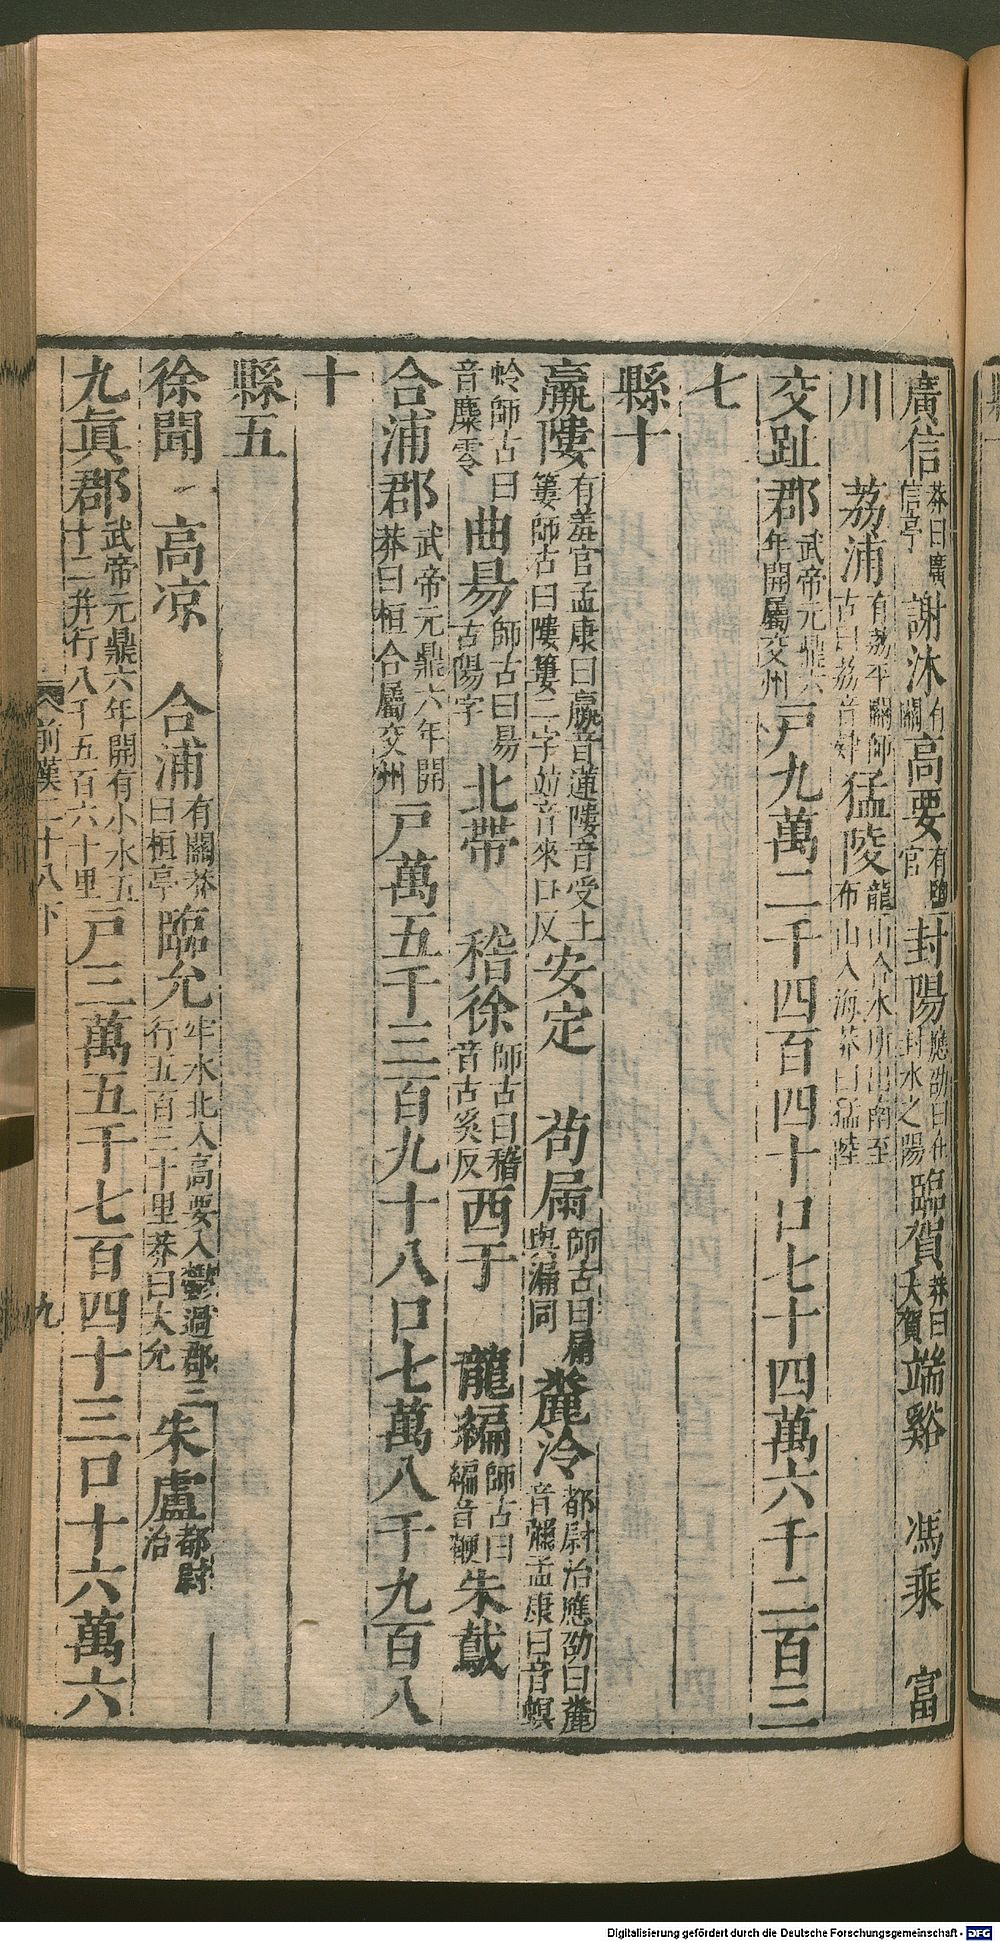 廣信莽曰廣信亭謝沐有關高要有鹽官封陽應劭曰在封水之陽臨賀莽曰大賀端谿 馮乘 富
川 荔浦有荔平關師古曰荔音肄猛陵龍山合水所出南至布山入海莽曰猛陸
交趾郡武帝元鼎六年開屬交州戶九萬二千四百四十口七十四萬六千二百三
七
縣十
羸𨻻有羞官孟康曰羸音蓮𨻻音受土簍師古曰𨻻簍二字並音來口反安定 苟屚師古曰屚與漏同麊泠都尉治應劭曰麊音彌孟康曰音螟
蛉師古曰音麋零曲昜師古曰昜古陽字北帶 稽徐師古曰稽音古奚反西于 龍編師古曰編音鞭朱䳒
合浦郡武帝元鼎六年開莽曰桓合屬交州戶萬五千三百九十八口七萬八千九百八
十
縣五
徐聞 高凉 合浦有關莽曰桓亭臨允牢水北入高要入鬱過郡三行五百三十里莽曰大允朱盧都尉治
九眞郡武帝元鼎六年開有小水五十二并行八千五百六十里戶三萬五千七百四十三口十六萬六
前漢二十八下 九
Digitalisierung gefördert durch die Deutsche Forschungsgemeinschaft - DFG